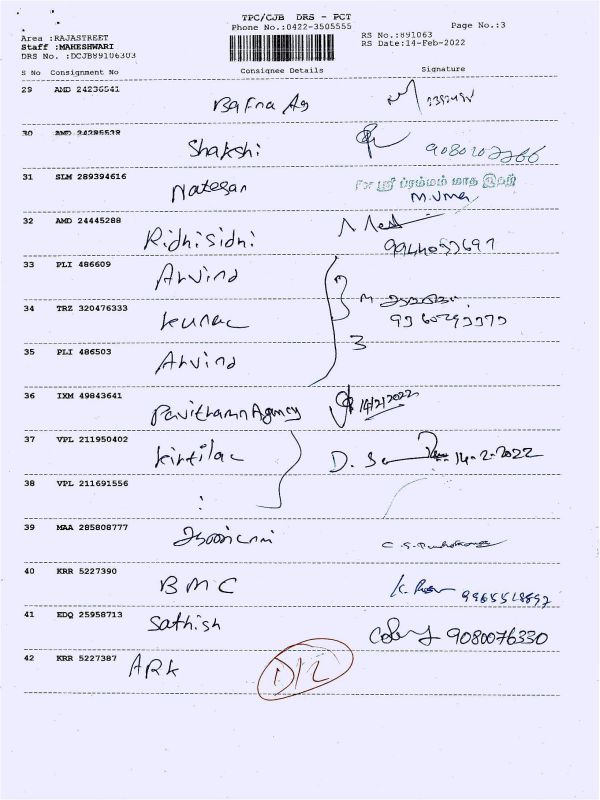 TPC/CJB DRS - PCT
Phone No.:0422-3505555
Page No.:3
Area :RAJASTREET
Staff :MAHESHWARI
DRS No. :DCJB89106303
RS No.:891063
RS Date:14-Feb-2022
S No Consignment No Consignee Details Signature
29 AMD 24236541 Bafna Ag
30 AMD 24285538 Shakshi
31 SLM 289394616 Natesan
M.Uma
32 AMD 24445288 Ridhisidhi
33 PLI 486609 Arvind
34 TRZ 320476333
35 PLI 486503 Arvind
3
36 IXM 49843641 Pavithamn Agency 14/2/2022
37 VPL 211950402 Kirtilal D. 14-2-2022
38 VPL 211691556 :
39 MAA 285808777
40 KRR 5227390 BMC
41 EDQ 25958713 Sathish 9080076330
42 KRR 5227387 ARK